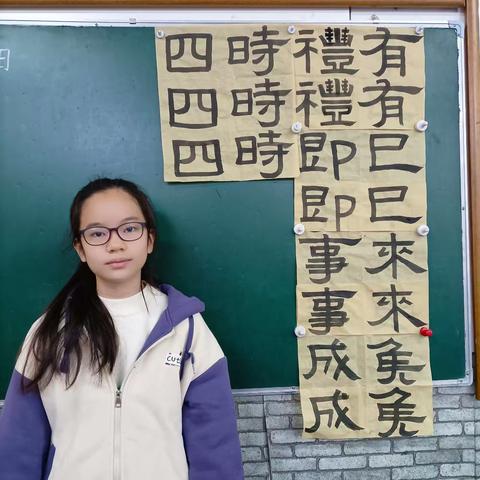 有有巳巳來來免免
禮禮即即事事成成
時時時
四四四